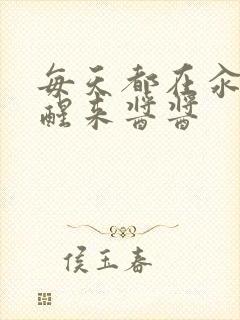 每天都在汆
醒来酱酱
侯玉春